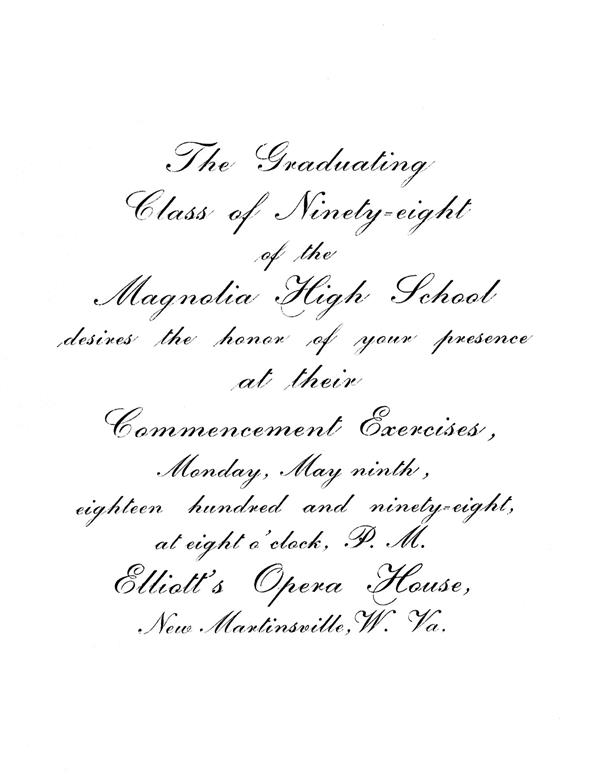 The Graduating
Class of Ninety-eight
of the
Magnolia High School
desires the honor of your presence
at their
Commencement Exercises,
Monday, May ninth,
eighteen hundred and ninety-eight,
at eight o'clock, P. M.
Elliott's Opera House,
New Martinsville, W. Va.